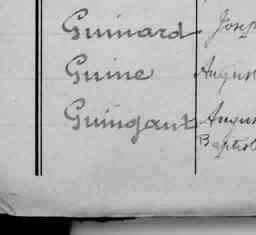 Guinard Josep
Guine Augus
Guingaux Augus
Baptis